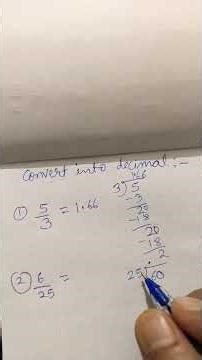 Convert into decimal :-
① 5/3 = 1.66
1.66
3)5
-3
20
-18
20
-18
2
② 6/25 =
25)60